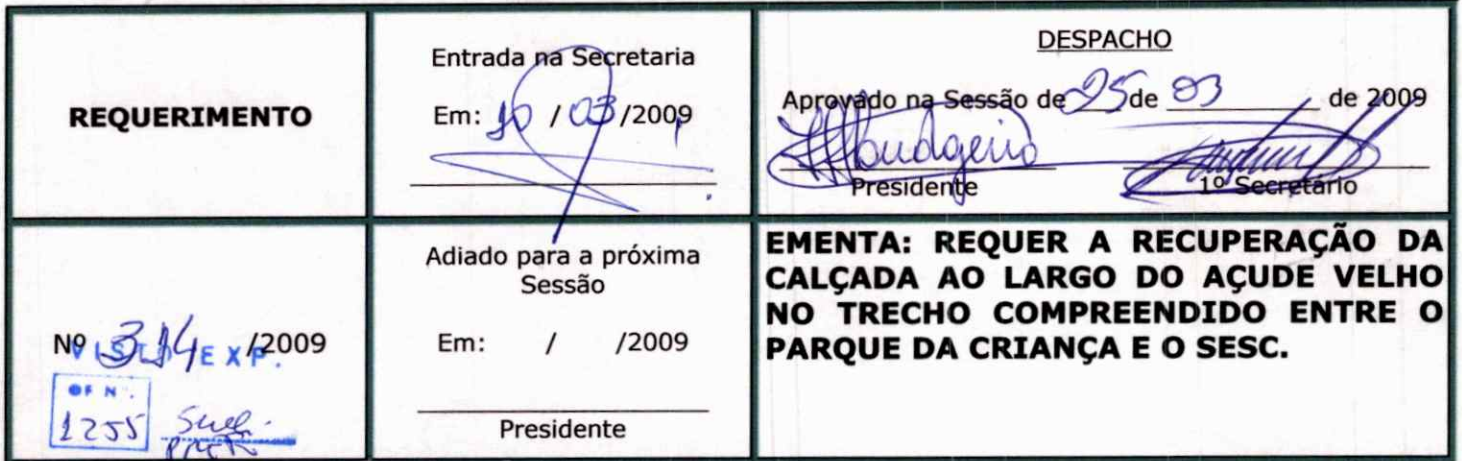 REQUERIMENTO
Entrada na Secretaria
Em: 10 / 03 /2009
DESPACHO
Aprovado na Sessão de 25 de 03 de 2009
Presidente
1º Secretário
Nº 314 /2009
VISTO EXP.
OF Nº.
1255
Adiado para a próxima
Sessão
Em: / /2009
Presidente
EMENTA: REQUER A RECUPERAÇÃO DA
CALÇADA AO LARGO DO AÇUDE VELHO
NO TRECHO COMPREENDIDO ENTRE O
PARQUE DA CRIANÇA E O SESC.